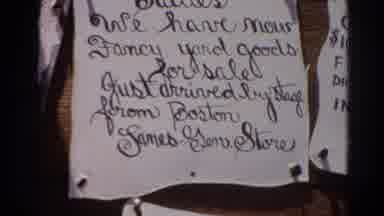 Ladies
We have now
Fancy yard goods
for sale
Just arrived by stage
from Boston
James Gen. Store